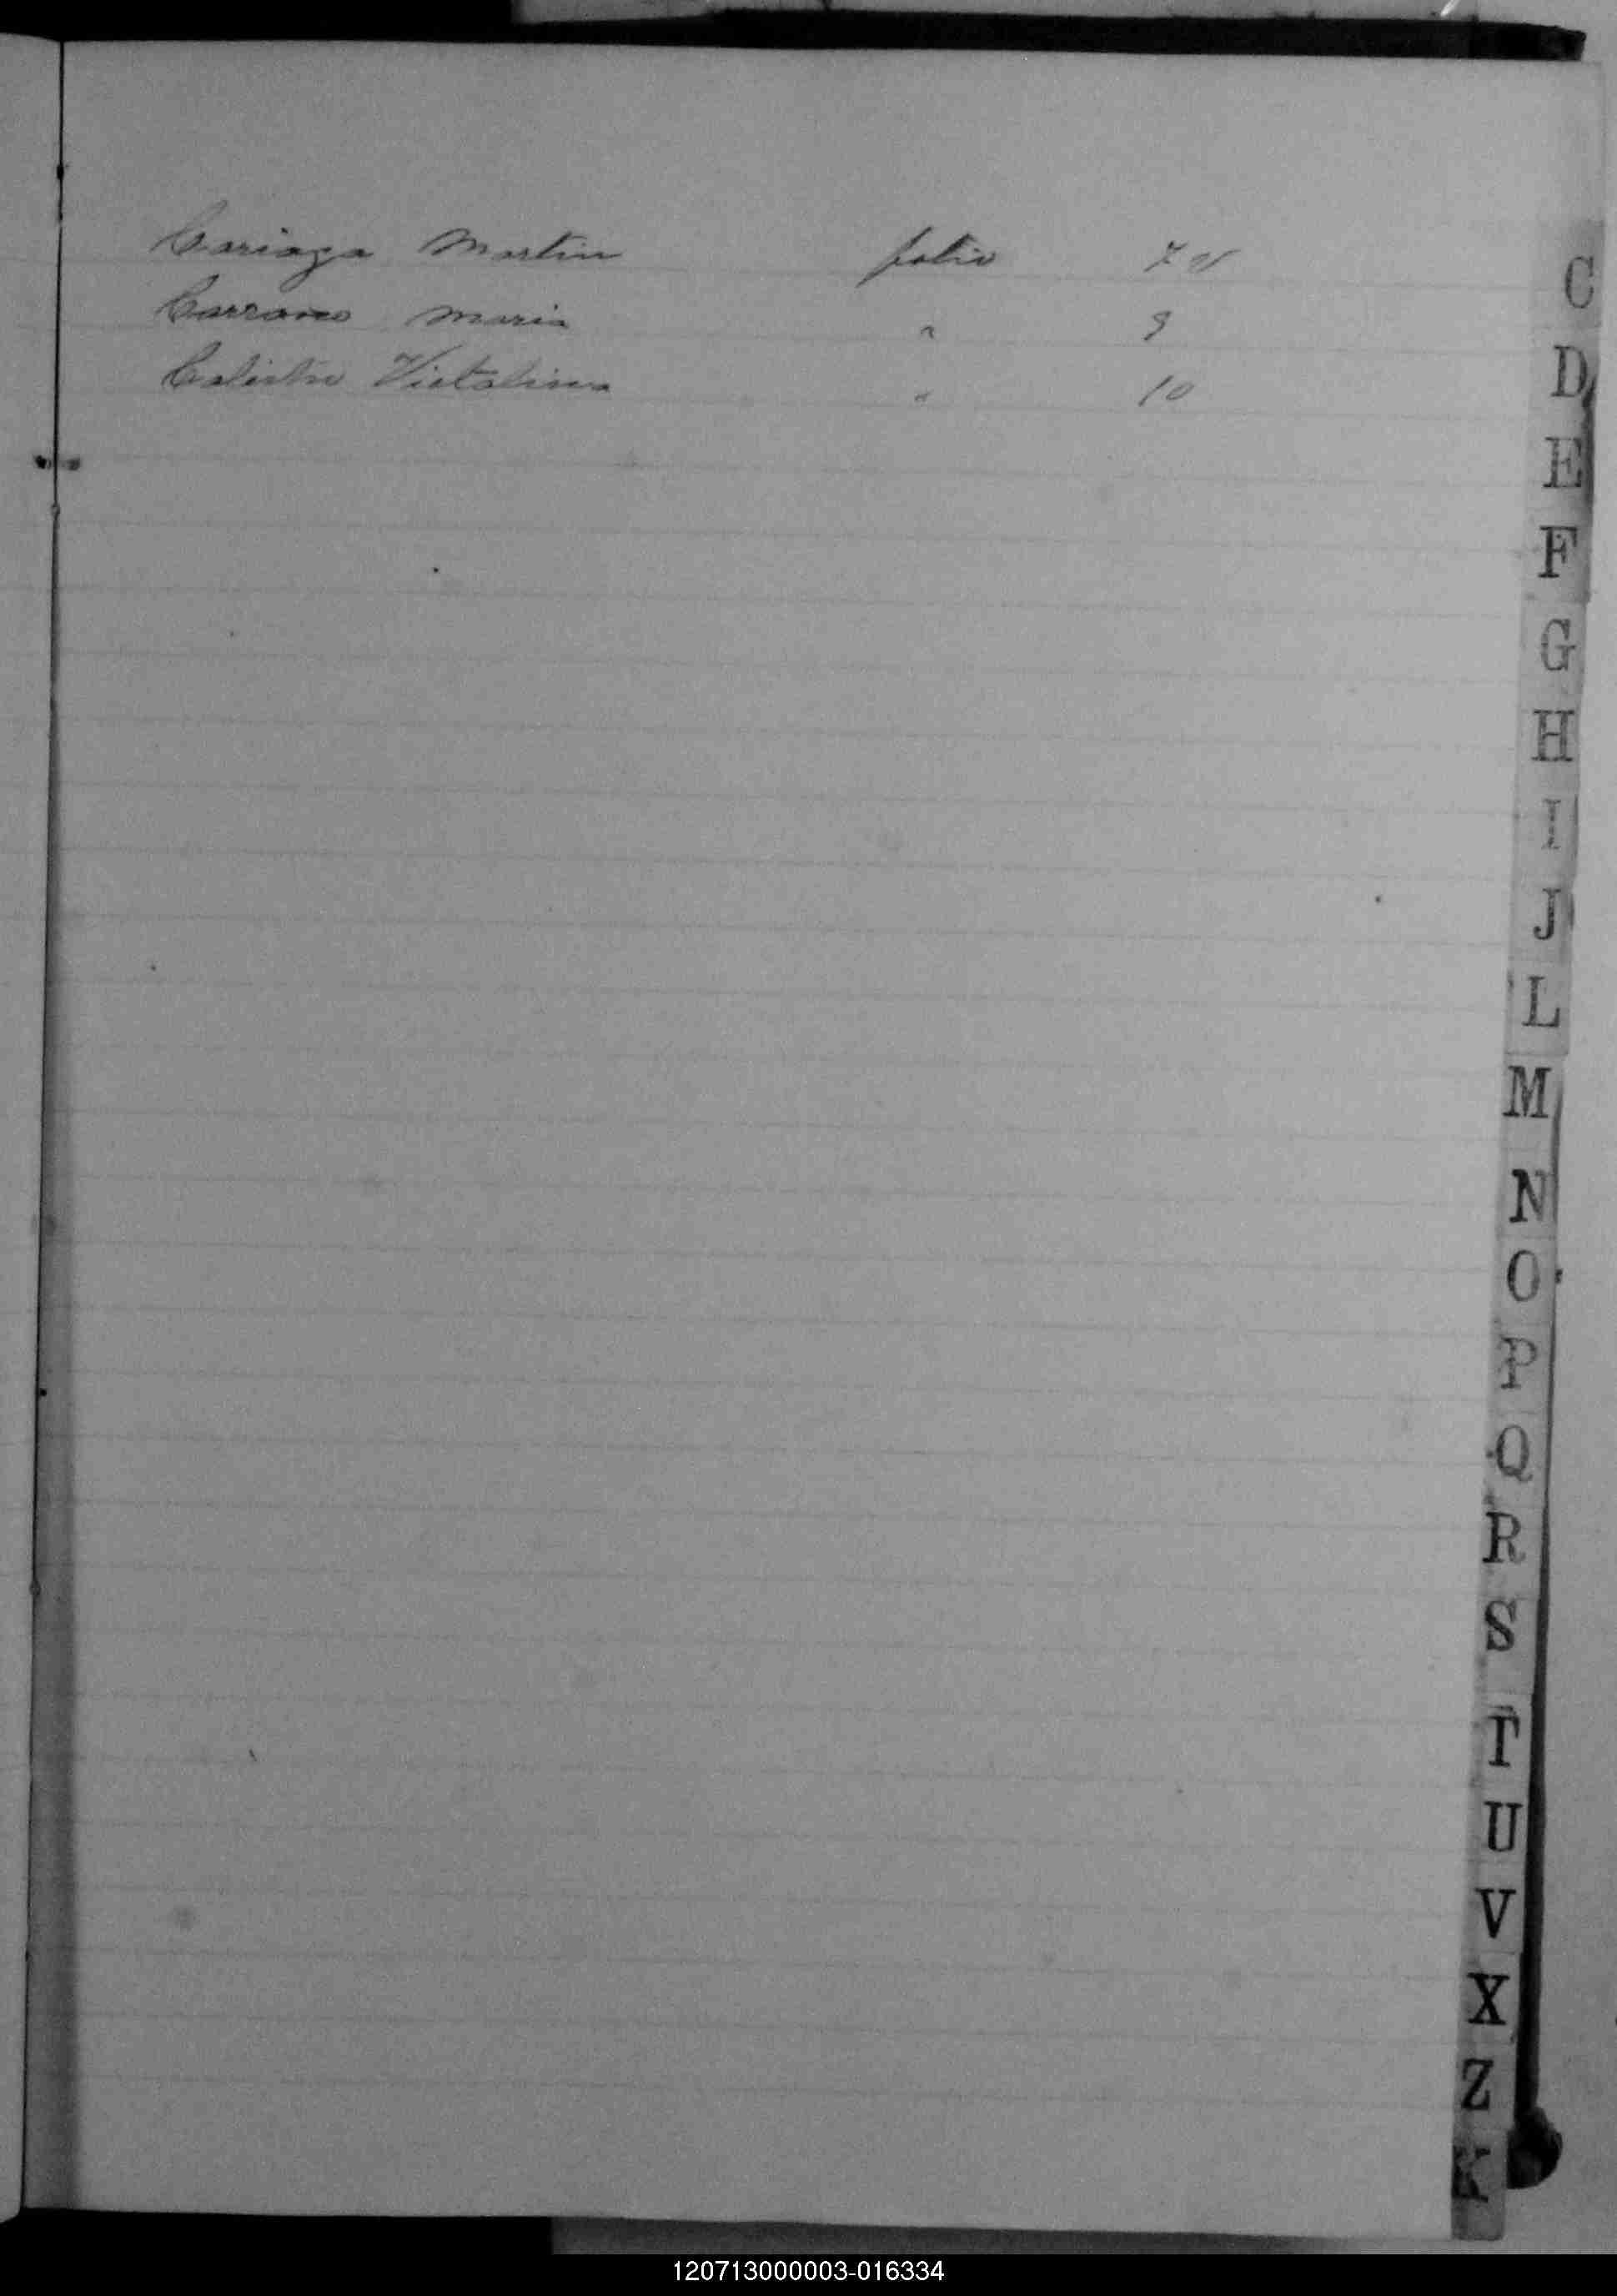 Cariaga Martin folio 7
Carranco Maria " 9
Calisto Victalina " 10
C
D
E
F
G
H
I
J
L
M
N
O
P
Q
R
S
T
U
V
X
Z
K
120713000003-016334